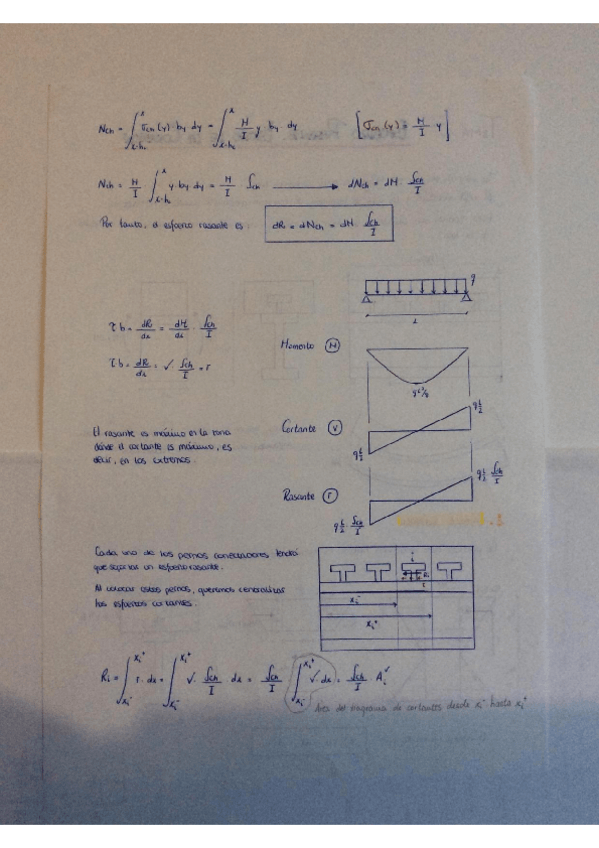 N_ch = ∫_{x-h_c}^{x} σ_ch (y) · b_y dy = ∫_{x-h_c}^{x} M/I y · b_y · dy [σ_ch (y) = M/I · y]
N_ch = M/I ∫_{x-h_c}^{x} y · b_y dy = M/I · S_ch ⟶ dN_ch = dM · S_ch/I
Por tanto, el esfuerzo rasante es: dR = dN_ch = dM · S_ch/I
q
L
τ b = dR/dx = dM/dx · S_ch/I
τ b = dR/dx = V · S_ch/I = r
Momento (M)
qL²/8
El rasante es máximo en la zona
dónde el cortante es máximo, es
decir, en los extremos.
Cortante (V)
q L/2
q L/2
Rasante (r)
q L/2 · S_ch/I
q L/2 · S_ch/I
Cada uno de los pernos conectadores tendrá
que soportar un esfuerzo rasante.
Al colocar estos pernos, queremos
los esfuerzos cortantes.
i
R_i
x_i^-
x_i^+
R_i = ∫_{x_i^-}^{x_i^+} r · dx = ∫_{x_i^-}^{x_i^+} V · S_ch/I · dx = S_ch/I ∫_{x_i^-}^{x_i^+} V · dx = S_ch/I · A_i^V
Área del diagrama de cortantes desde x_i^- hasta x_i^+